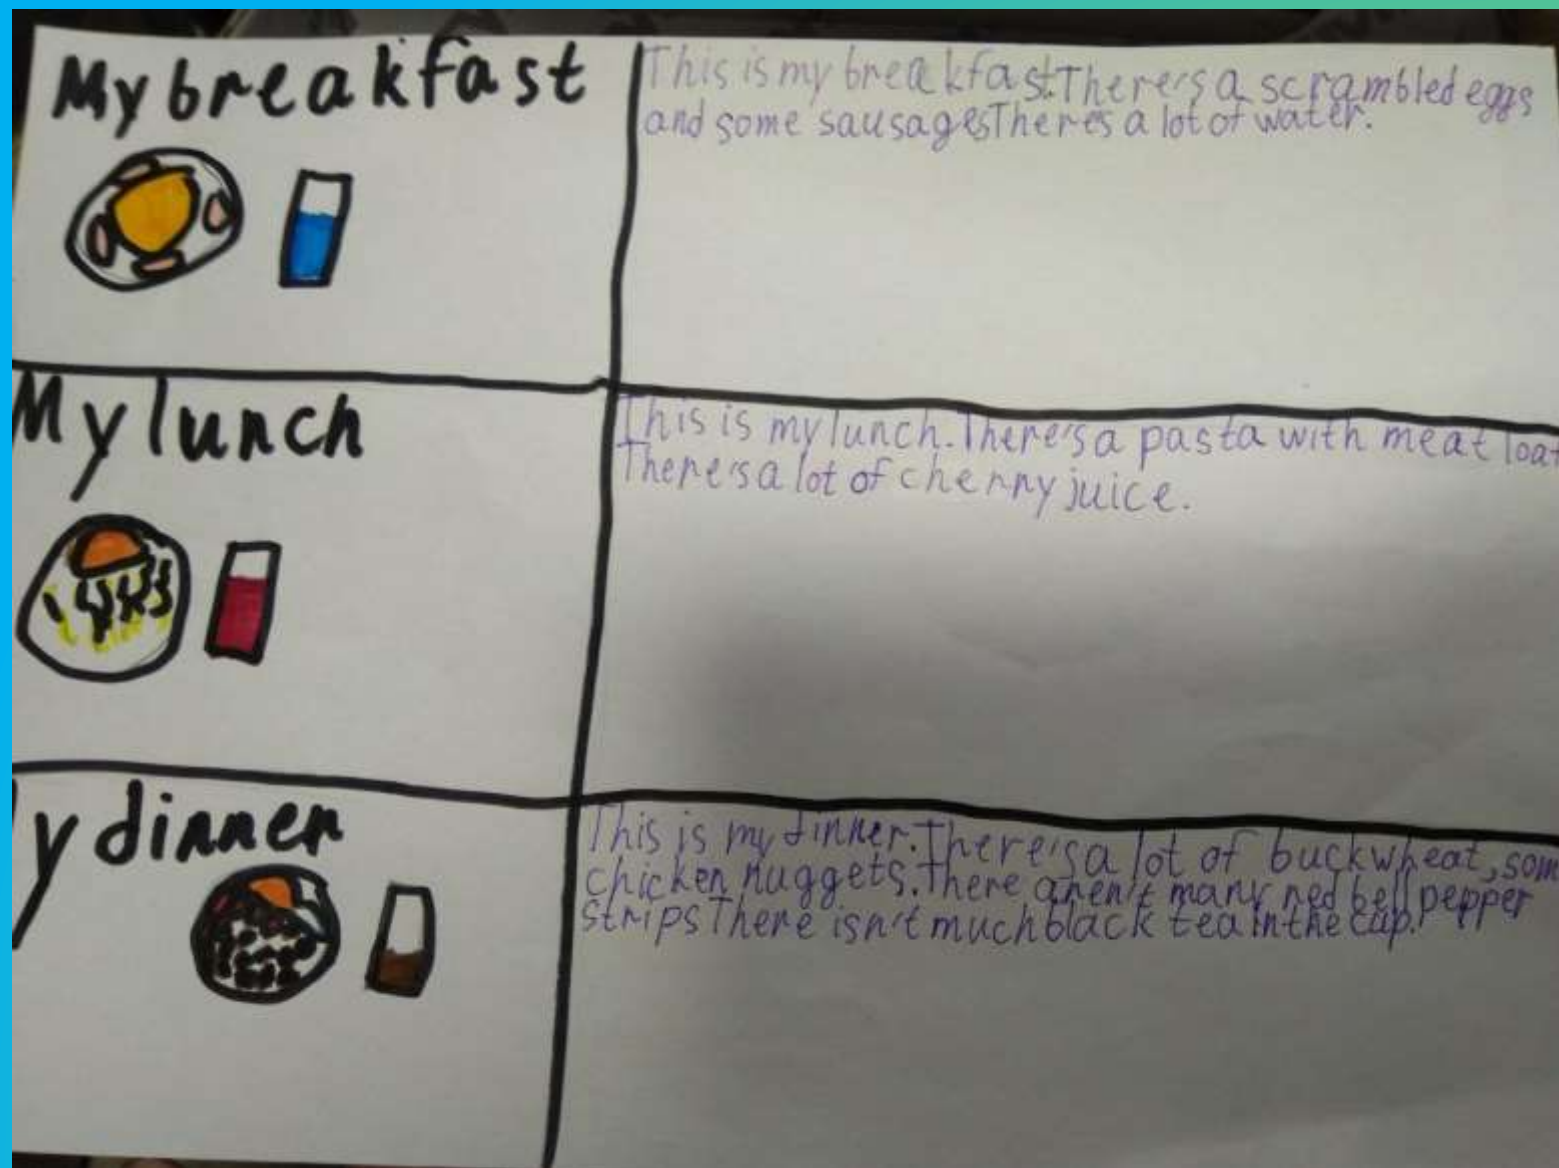 My breakfast
This is my breakfast. There's a scrambled eggs
and some sausages There's a lot of water.
My lunch
This is my lunch. There's a pasta with meat loaf
There's a lot of cherry juice.
y dinner
This is my dinner. There's a lot of buckwheat, som
chicken nuggets. There aren't many red bell pepper
strips There isn't much black tea in the cup.